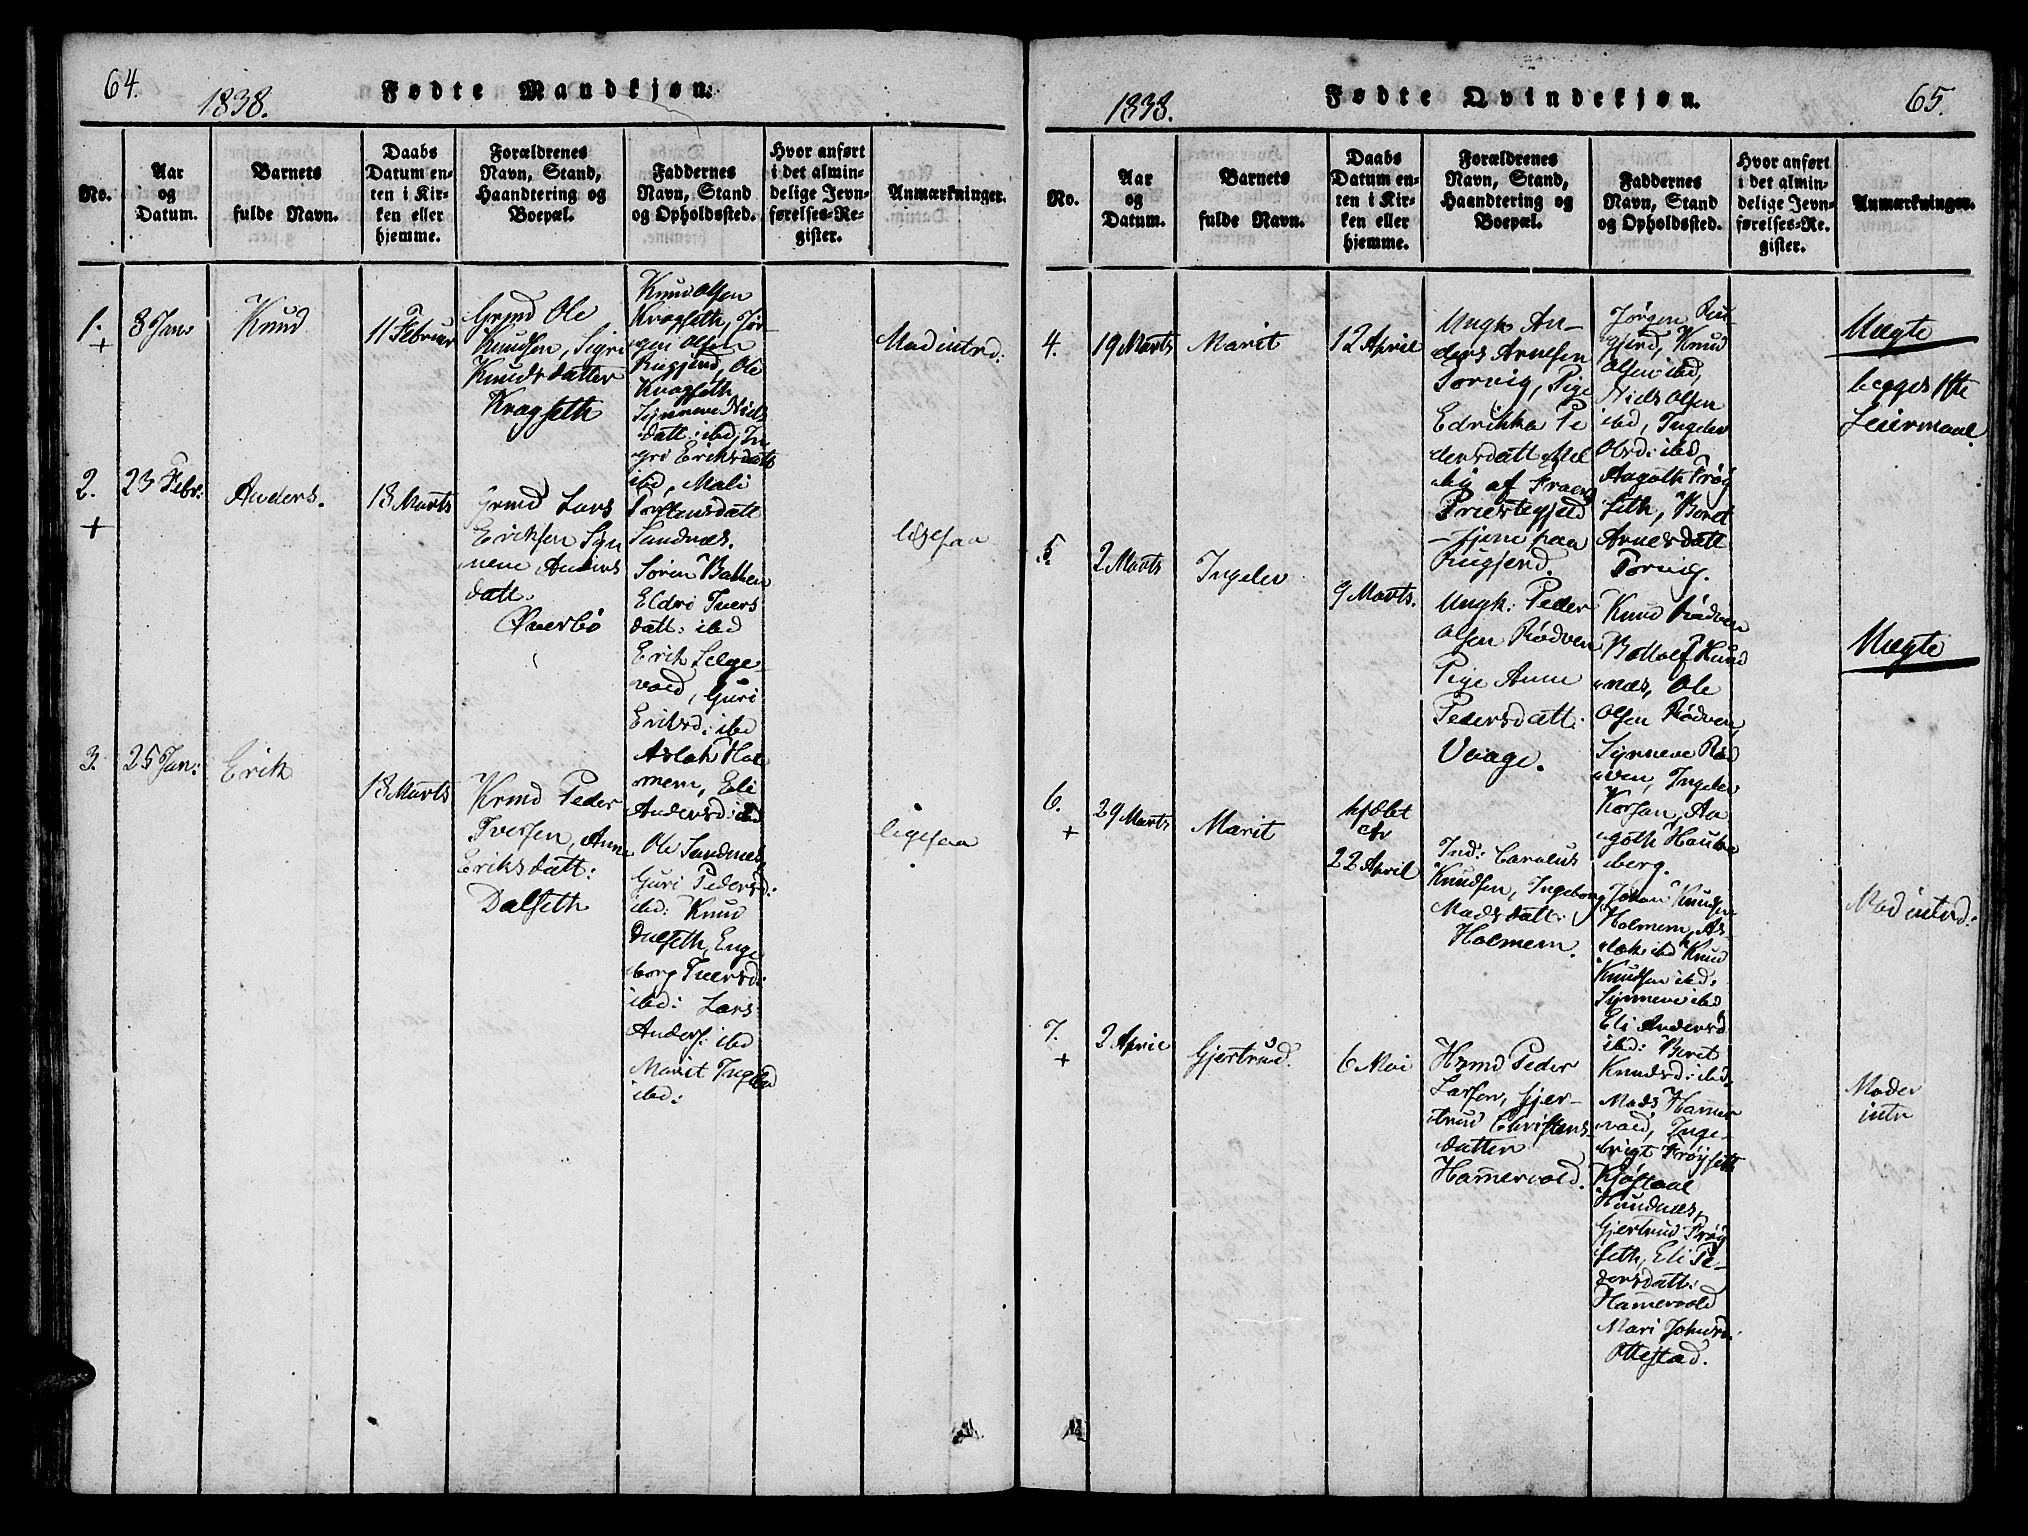 64.
1838.
Fødte Mandkjøn.
No.
Aar
og
Datum.
Barnets
fulde Navn.
Daabs
Datum en-
ten i Kir-
ken eller
hjemme.
Forældrenes
Navn, Stand,
Haandtering og
Boepæl.
Faddernes
Navn, Stand
og Opholdssted.
Hvor anført
i det almin-
delige Jevn-
førelses-Re-
gister.
Anmærkninger.
1.
+
8 Jan
Knud
11 Februar
Grmd Ole
Knudsen, Sigri
Knudsdatter
Kragseth
Knud Olsen
Kragseth, Jør-
gen Olsen
Rugjerd, Ole
Kragseth,
Synneve Niels
datt: ibd, In-
gri Eriksdatt
ibd, Mali
Torstensdatt
Sandnæs.
Mod introd:
2.
+
23 Febr:
Anders.
18 Marts
Grmd Lars
Eriksen Syn
neve Anders
datt:
Øverbø
Søren Bakken
Eldri Ivers
datt: ibd
Erik Selge-
vold, Guri
Eriksd: ibd
Aslak Hol
mem, Eli
Andersd: ibd
ligesaa
3.
25 Jan:
Erik
18 Marts
Krmd Peder
Iversen, Anne
Eriksdatt:
Dalseth
Ole Sandnes,
Guri Pedersd:
ibd: Knud
Dalseth, Enge
borg Iversd:
ibd: Lars
Anders: ibd
Marit
ibd:
ligesaa
1838.
Fødte Qvindekjøn.
65.
No.
Aar
og
Datum.
Barnets
fulde Navn.
Daabs
Datum en-
ten i Kir-
ken eller
hjemme.
Forældrenes
Navn, Stand,
Haandtering og
Boepæl.
Faddernes
Navn, Stand
og Opholdssted.
Hvor anført
i det almin-
delige Jevn-
førelses-Re-
gister.
Anmærkninger.
4.
19 Marts
Marit
12 April
Ungk. An-
ders Arnesen
Torvig, Pige
Edrikka Pe
dersdatt Mel
by af Fraens
Præstegjeld
tjene paa
Rugjerd.
Jørgen Ru-
gjerd, Knud
Olsen ibd,
Niels Olsen
ibd, Ingelev
Olsd: ibd,
Aagoth Frøy
seth, Beret
Arnesdatt
Torvig.
Uægte
begges 1ste
Leiermaal.
5.
2 Marts
Ingelev
9 Marts.
Ungk: Peder
Olsen Rødven
Pige Anne
Pedersdatt:
Uvage.
Knud Rødven
Bottolf Hund
næs, Ole
Olsen Rødven
Synneve Rød
ven, Ingelev
Korsan, Aa
goth Hauke
berg.
Uægte
6.
+
29 Marts
Marit
hjdbt
22 April
Ind: Carolus
Knudsen, Ingeborg
Madsdatt:
Holmem.
Johan Knudsen
Holmem, As
lak ibd Knud
Knudsen ibd:
Synneve ibd
Eli Andersd
ibd: Beret
Knudsd: ibd.
Mod introd:
7.
+
2 April
Gjertrud.
6 Mai
Hrmd Peder
Larsen, Gjer-
trud Christens-
datter
Hamervold.
Mads Hamer
vold, Inge-
brigt Frøyseth
Hundnæs,
Gjertrud Frøy
seth, Eli Pe-
dersdatt:
Hamervold
Mari Johnsd:
Ottestad.
Moder
intr